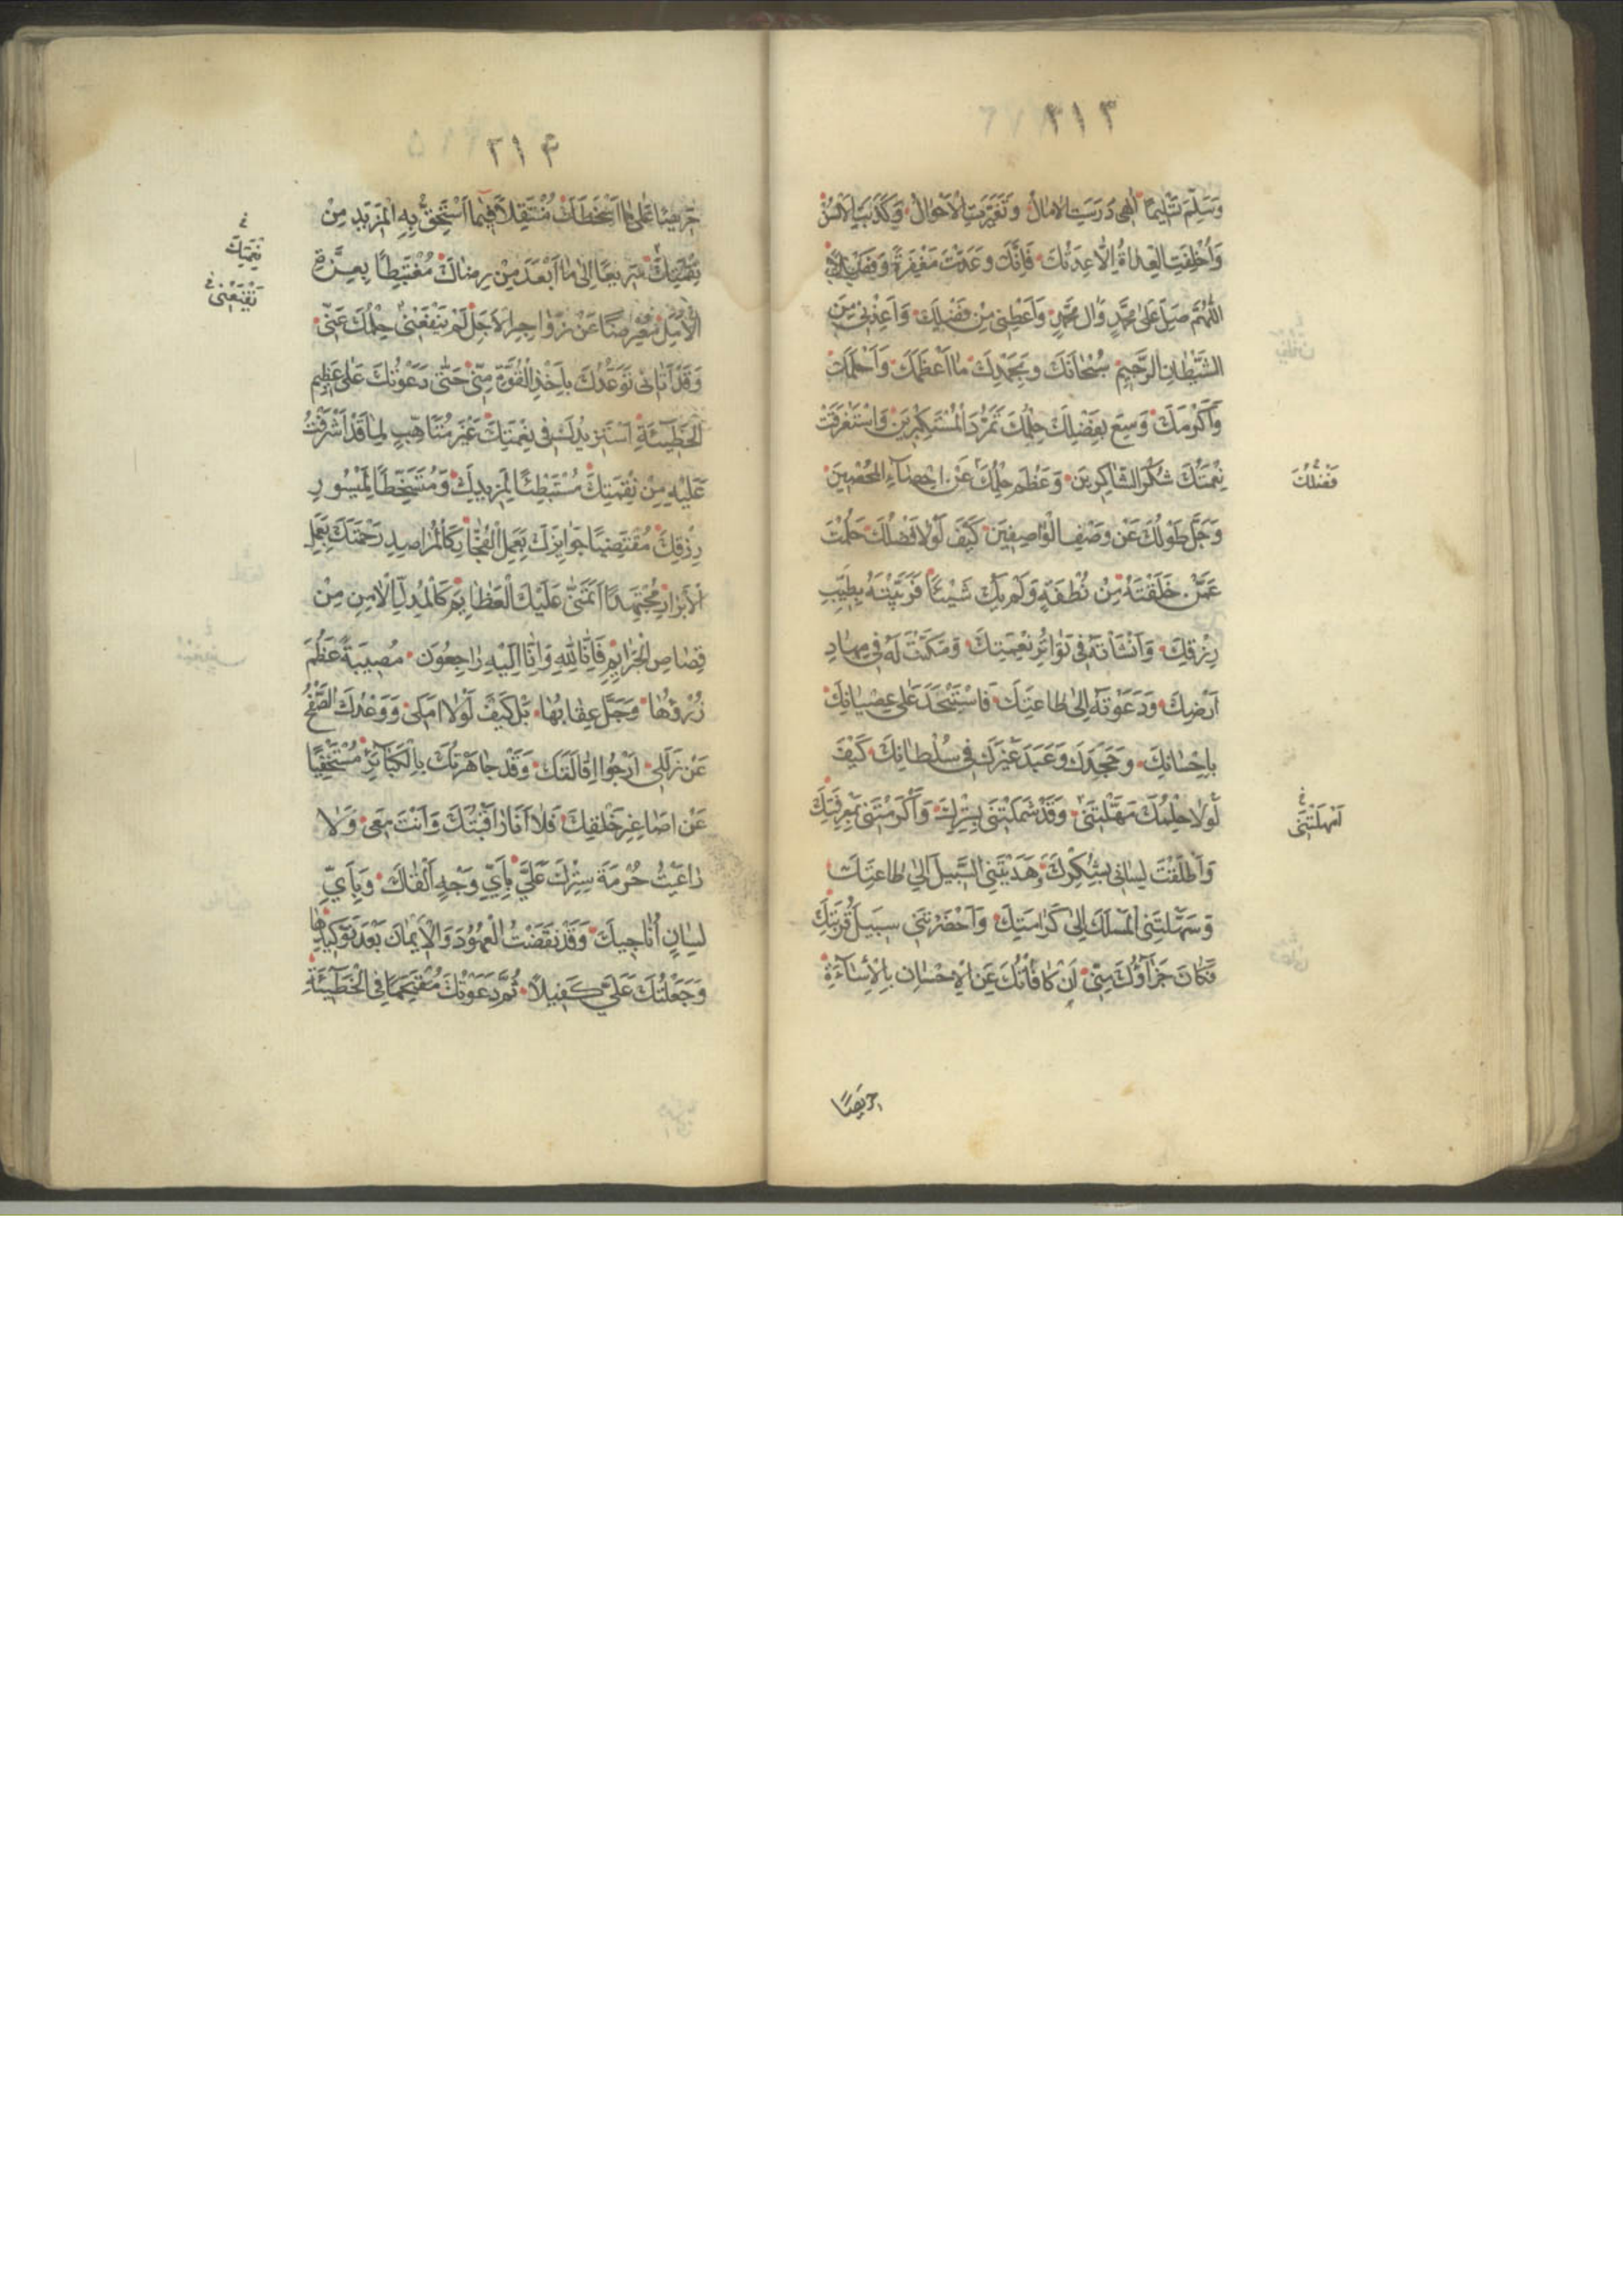 ٣١٣
وَسَلَّمَ تَسْلِيمًا اِلٰهِى دَرَسَتِ الاٰمالُ وَتَغَيَّرَتِ الْاَحْوالُ وَكَذَبَتِ الْاَلْسُنُ
وَاُخْلِفَتِ الْعِداةُ اِلّا عِدَتُكَ فَاِنَّكَ وَعَدْتَ مَغْفِرَةً وَفَضْلًا
اَللّٰهُمَّ صَلِّ عَلىٰ مُحَمَّدٍ وَاٰلِ مُحَمَّدٍ وَاَعْطِنِى مِنْ فَضْلِكَ وَاَعِذْنِى مِنَ
الشَّيْطانِ الرَّجِيمِ سُبْحانَكَ وَبِحَمْدِكَ ما اَعْظَمَكَ وَاَحْلَمَكَ
وَاَكْرَمَكَ وَسِعَ بِفَضْلِكَ حِلْمُكَ تَمَرُّدَ الْمُسْتَكْبِرِينَ وَاسْتَغْرَقَتْ
نِعْمَتُكَ شُكْرَ الشّاكِرِينَ وَعَظُمَ حِلْمُكَ عَنْ اِحْصآءِ الْمُحْصِينَ
فَضْلُكَ
وَجَلَّ طَوْلُكَ عَنْ وَصْفِ الْواصِفِينَ كَيْفَ لَوْلا فَضْلُكَ حَلُمْتَ
عَمَّنْ خَلَقْتَهُ مِنْ نُطْفَةٍ وَلَمْ يَكُ شَيْئًا فَرَبَّيْتَهُ بِطَيِّبِ
رِزْقِكَ وَاَنْشَأْتَهُ فِى تَواتُرِ نِعْمَتِكَ وَمَكَّنْتَ لَهُ فِى مِهادِ
اَرْضِكَ وَدَعَوْتَهُ اِلىٰ طاعَتِكَ فَاسْتَنْجَدَ عَلىٰ عِصْيانِكَ
بِاِحْسانِكَ وَجَحَدَكَ وَعَبَدَ غَيْرَكَ فِى سُلْطانِكَ كَيْفَ
لَوْلا حِلْمُكَ مَهَّلْتَنِى وَقَدْ شَمَلْتَنِى بِسِتْرِكَ وَاَكْرَمْتَنِى بِمَعْرِفَتِكَ
اَمْهَلْتَنِى
وَاَطْلَقْتَ لِسانِى بِشُكْرِكَ وَهَدَيْتَنِى السَّبِيلَ اِلىٰ طاعَتِكَ
وَسَهَّلْتَنِى الْمَسْلَكَ اِلىٰ كَرامَتِكَ وَاَحْضَرْتَنِى سَبِيلَ قُرْبَتِكَ
فَكانَ جَزآؤُكَ مِنِّى اَنْ كافَأْتُكَ عَنِ الْاِحْسانِ بِالْاِسآءَةِ
حَرِيصًا
٣١۴
حَرِيصًا عَلىٰ ما اَسْخَطَكَ مُتَنَقِّلًا فِيما اَسْتَحِقُّ بِهِ الْمَزِيدَ مِنْ
نِقْمَتِكَ سَرِيعًا اِلىٰ ما اَبْعَدَ مِنْ رِضاكَ مُغْتَبِطًا بِعِزَّةِ
نِقْمَتِكَ
يُقْنِعْنِى
الْاَمَلِ مُعْرِضًا عَنْ زَواجِرِ الْاَجَلِ لَمْ يَنْفَعْنِى حِلْمُكَ عَنِّى
وَقَدْ اَتانِى تَوَعُّدُكَ بِاَخْذِ الْقُوَّةِ مِنِّى حَتّىٰ دَعَوْتُكَ عَلىٰ عَظِيمِ
الْخَطِيٓئَةِ اَسْتَزِيدُكَ فِى نِعْمَتِكَ غَيْرَ مُتَاَهِّبٍ لِما قَدْ اَشْرَفْتُ
عَلَيْهِ مِنْ نِقْمَتِكَ مُسْتَبْطِئًا لِمَزِيدِكَ وَمُتَسَخِّطًا لِمَيْسُورِ
رِزْقِكَ مُقْتَضِيًا جَوايِزَكَ بِعَمَلِ الْفُجّارِ كَالْمُراصِدِ رَحْمَتَكَ بِعَمَلِ
الْاَبْرارِ مُجْتَهِدًا اَتَمَنّىٰ عَلَيْكَ الْعَظايِمَ كَالْمُدِلِّ الْاٰمِنِ مِنْ
قِصاصِ الْجَرايِمِ فَاِنّا لِلّٰهِ وَاِنّا اِلَيْهِ راجِعُونَ مُصِيبَةٌ عَظُمَ
رُزْؤُها وَجَلَّ عِقابُها بَلْ كَيْفَ لَوْلا اَمَلِى وَوَعْدُكَ الصَّفْحَ
عَنْ زَلَلِى اَرْجُوا اِقالَتَكَ وَقَدْ جاهَرْتُكَ بِالْكَبآئِرِ مُسْتَخْفِيًا
عَنْ اَصاغِرِ خَلْقِكَ فَلا اَنَا راقَبْتُكَ وَاَنْتَ مَعِى وَلا
راعَيْتُ حُرْمَةَ سِتْرِكَ عَلَىَّ بِاَىِّ وَجْهٍ اَلْقاكَ وَبِاَىِّ
لِسانٍ اُناجِيكَ وَقَدْ نَقَضْتُ الْعُهُودَ وَالْاَيْمانَ بَعْدَ تَوْكِيدِها
وَجَعَلْتُكَ عَلَىَّ كَفِيلًا ثُمَّ دَعَوْتُكَ مُقْتَحِمًا فِى الْخَطِيٓئَةِ